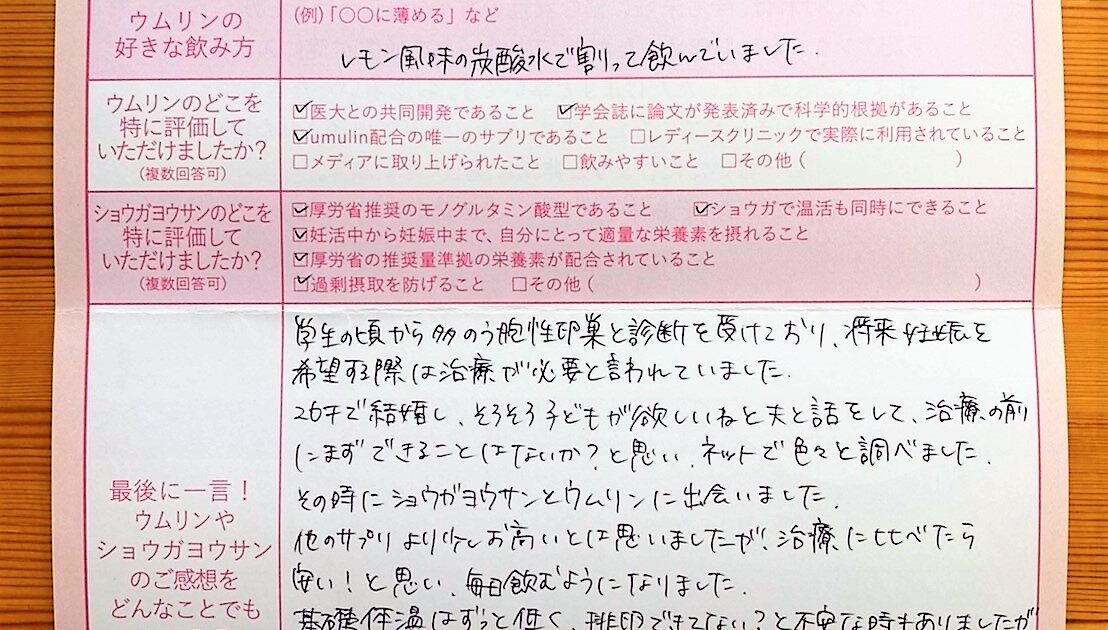 ウムリンの
好きな飲み方
(例)「〇〇に薄める」など
レモン風味の炭酸水で割って飲んでいました.
ウムリンのどこを
特に評価して
いただけましたか?
(複数回答可)
☑医大との共同開発であること ☑学会誌に論文が発表済みで科学的根拠があること
☑umulin配合の唯一のサプリであること □レディースクリニックで実際に利用されていること
□メディアに取り上げられたこと □飲みやすいこと □その他( )
ショウガヨウサンのどこを
特に評価して
いただけましたか?
(複数回答可)
☑厚労省推奨のモノグルタミン酸型であること ☑ショウガで温活も同時にできること
☑妊活中から妊娠中まで、自分にとって適量な栄養素を摂れること
☑厚労省の推奨量準拠の栄養素が配合されていること
☑過剰摂取を防げること □その他( )
最後に一言!
ウムリンや
ショウガヨウサン
のご感想を
どんなことでも
学生の頃から多のう胞性卵巣と診断を受けており、将来妊娠を
希望する際は治療が必要と言われていました.
26才で結婚し、そろそろ子どもが欲しいねと夫と話をして、治療の前
にまずできることはないか?と思い、ネットで色々と調べました.
その時にショウガヨウサンとウムリンに出会いました.
他のサプリより少しお高いとは思いましたが、治療に比べたら
安い!と思い、毎日飲むようになりました.
基礎体温はずっと低く、排卵できてない?と不安な時もありましたが